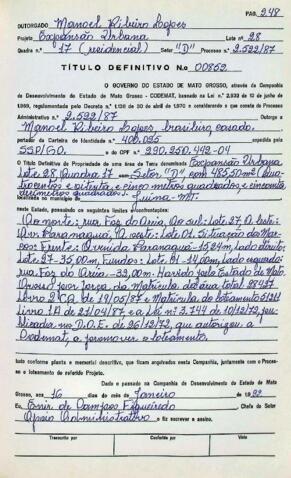 PAG. 248
OUTORGADO Manoel Ribeiro Lopes
Projeto Expansão Urbana Lote n.º 28
Quadra n.º 17 (residencial) Setor "D" Processo n.º 2.522/87
TÍTULO DEFINITIVO N.o 00852
O GOVERNO DO ESTADO DE MATO GROSSO, através da Companhia
de Desenvolvimento do Estado de Mato Grosso - CODEMAT, baseado na Lei n.º 2.933 de 12 de junho de
1969, regulamentada pelo Decreto n.º 1.138 de 30 de abril de 1970 e considerando o que consta do Processo
Administrativo n.º 2.522/87 Outorga a
Manoel Ribeiro Lopes, brasileiro casado,
portador da Carteira de Identidade n.º 400.095 expedida pela
SSP/GO. e do CPF n.º 290.250.442-04
O Título Definitivo de Propriedade de uma área de Terra denominada Expansão Urbana
Lote 28, Quadra 17 com Setor "D", com 485,50m² (Qua-
trocentos e oitenta e cinco metros quadrados e cinquenta
decímetros quadrados).
situado no município de Juina-MT.
neste Estado, possuindo os seguintes limites e confrontações:
Ao norte: rua Foz do Areia. Ao sul: Lote 27. A leste:
Av. Paranaguá. A oeste: Lote 01. Situação da Mar-
cos: Frente: Avenida Paranaguá-15,24m, Lado direito:
Lote 27-35,00m, Fundos: Lote 01-14,00m, Lado esquerdo:
rua Foz do Areia-32,00m. Havido pelo Estado de Mato
Grosso por força da Matrícula da área total 28427
Livro 2 CA de 19/05/87 e Matrícula do loteamento
Livro 1A de 27/04/87 e a Lei n.º 3.744 de 10/12/73, pu-
blicada no D.O.E. de 26/12/73, que autorizou a
Codemat, a promover o loteamento.
tudo conforme planta e memorial descritivo, que ficam arquivados nesta Companhia, juntamente com o Proces-
so e loteamento do referido Projeto.
Dado e passado na Companhia de Desenvolvimento do Estado de Mato
Grosso, aos 16 dias do mês de Janeiro de 1992
Eu Enir de Campos Figueiredo Chefe do Setor
Apoio Administrativo o fiz escrever e assino.
Transcrito por Conferido por Visto